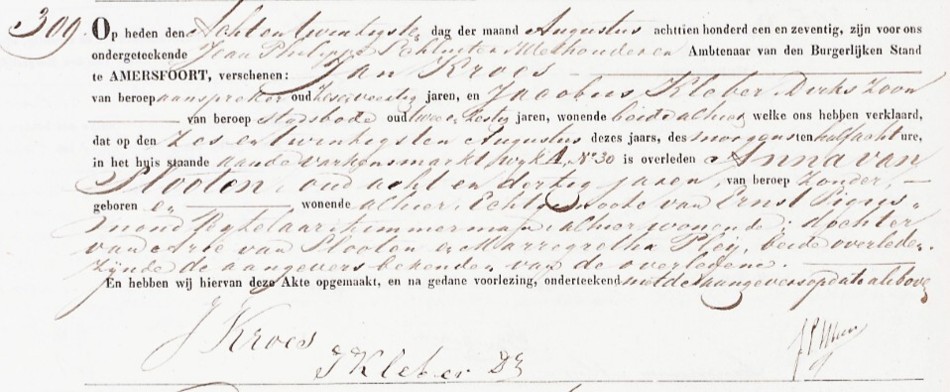 309. Op heden den Acht en twintigsten dag der maand Augustus achttien honderd een en zeventig, zijn voor ons
ondergeteekende Jean Philippe Wethouder en Ambtenaar van den Burgerlijken Stand
te AMERSFOORT, verschenen: Jan Kroes
van beroep aanspreker oud jaren, en Jacobus Kleber Dirks Zoon
van beroep Stadsbode oud twee en zestig jaren, wonende beide alhier welke ons hebben verklaard,
dat op den Zes en twintigsten Augustus dezes jaars, des morgens ten half acht ure,
in het huis staande aan de Varkensmarkt wyk A, No. 30 is overleden Anna van
Slooten, oud acht en dertig jaren, van beroep Zonder,
geboren en wonende alhier, Echtgenoote van Ernst
timmerman alhier wonende; dochter
van van Slooten en Marregretha Pley, beide overleden.
Zynde de aangevers bekenden van de overledene.
En hebben wij hiervan deze Akte opgemaakt, en na gedane voorlezing, onderteekend met de aangevers op dato als boven
J Kroes
J Kleber Dz